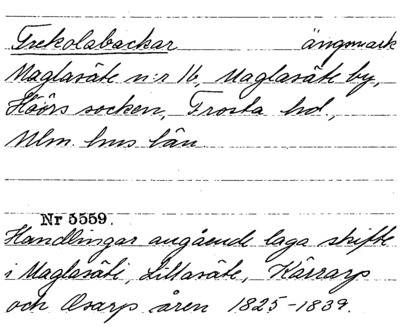 Trekolabackar ängsmark
Maglasäte n:r 16, Maglasäte by,
Höörs socken, Frosta hd,
Mlm. hus län
Nr 5559.
Handlingar angående laga skifte
i Maglasäte, Lillasäte, Kärrarp
och Osarp åren 1825-1839.